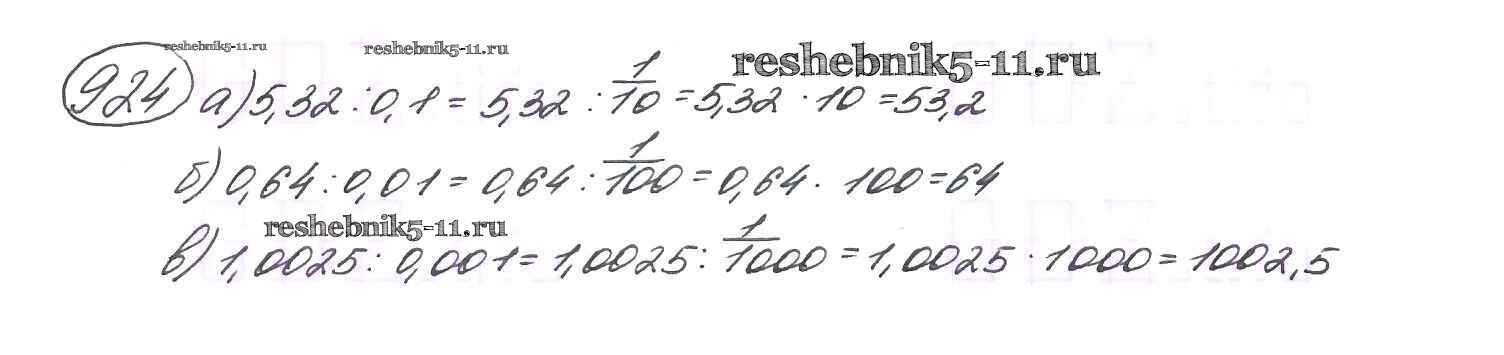 reshebnik5-11.ru reshebnik5-11.ru reshebnik5-11.ru
924 а) 5,32 : 0,1 = 5,32 : 1/10 = 5,32 · 10 = 53,2
б) 0,64 : 0,01 = 0,64 : 1/100 = 0,64 · 100 = 64
reshebnik5-11.ru
в) 1,0025 : 0,001 = 1,0025 : 1/1000 = 1,0025 · 1000 = 1002,5